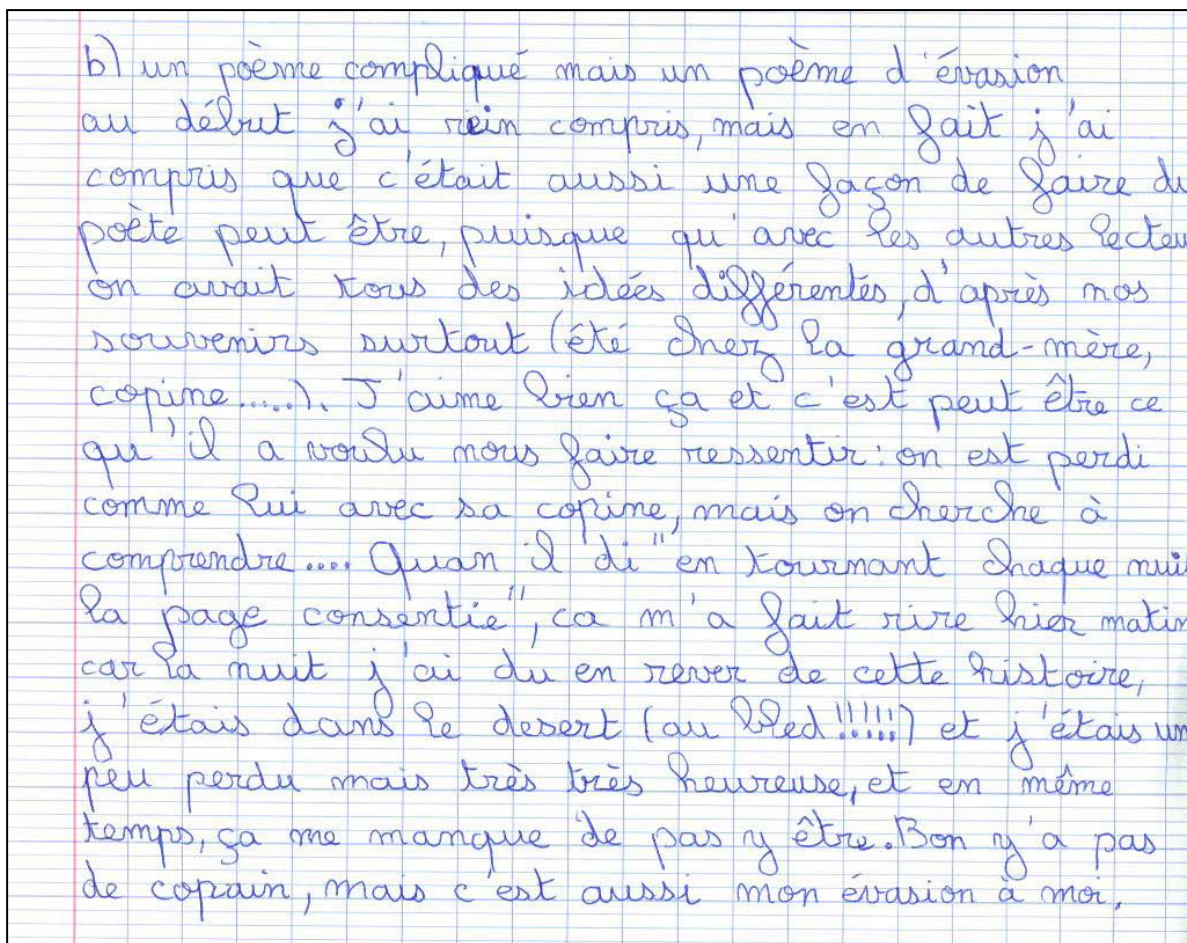 b) un poème compliqué mais un poème d'évasion
au début j'ai rein compris, mais en fait j'ai
compris que c'était aussi une façon de faire du
poète peut être, puisque qu'avec les autres lecteu
on avait tous des idées différentes, d'après nos
souvenirs surtout (été chez la grand-mère,
copine.....). J'aime bien ça et c'est peut être ce
qu'il a voulu nous faire ressentir : on est perdi
comme lui avec sa copine, mais on cherche à
comprendre.... Quan il di "en tournant chaque nuit
la page consentie", ca m'a fait rire hier matin
car la nuit j'ai du en rever de cette histoire,
j'étais dans le desert (au bled !!!!!!) et j'étais un
peu perdu mais très très heureuse, et en même
temps, ça me manque de pas y être. Bon y'a pas
de copain, mais c'est aussi mon évasion à moi.